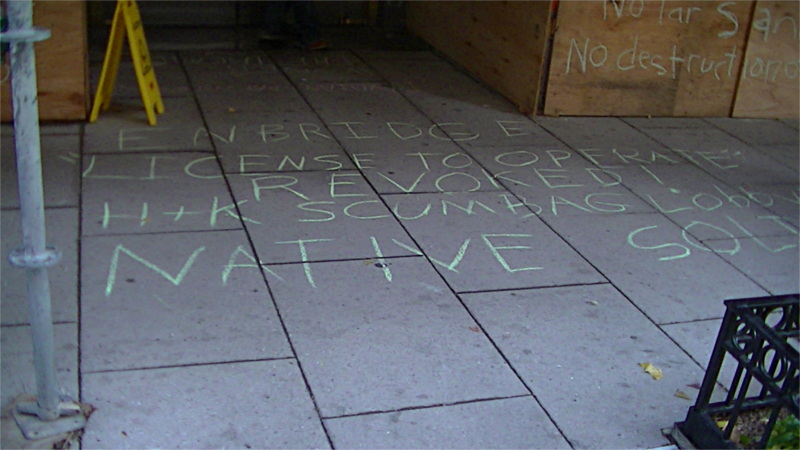 No Tar San
No destruction o
ENBRIDGE
"LICENSE TO OPERATE"
REVOKED!
H+K SCUMBAG Lobby
NATIVE SOLI